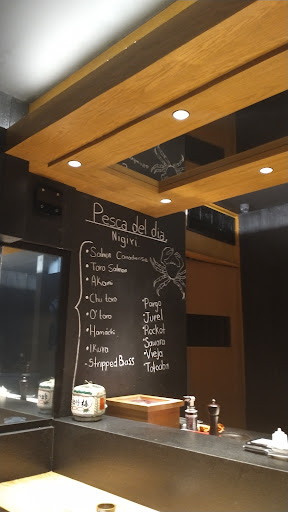 Pesca del día.
Nigiri
• Salmon Canadiense
• Toro Salmon
• Akami
• Chu toro
• O'toro
• Hamachi
• Ikura
- Stripped Bass
Pargo
Jurel
Rockot
Sawara
Vieja